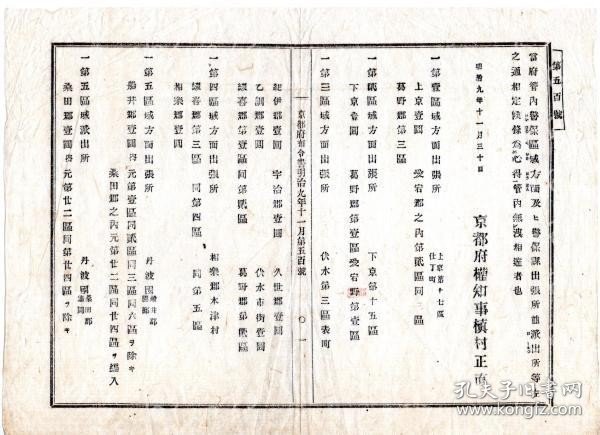 第五百號
當府管内警保區域方面及ヒ警保課出張所並派出所等左
之通相定候條爲心得管内無洩相達者也
明治九年十一月三十日
京都府權知事槇村正直
一第壹區域方面出張所
上京第十七區
仕丁町
上京壹圓 愛宕郡之内第貳區同 區
葛野郡第三區
一第貳區域方面出張所 下京第十五區
下京壹圓 葛野郡第壹區愛宕郡第壹區
一第三區域方面出張所 伏水第三區表町
京都府布令書明治九年十一月第五百號 〇一
紀伊郡壹圓 宇治郡壹圓 久世郡壹圓
乙訓郡壹圓 伏水市街壹圓
綴喜郡第壹區同第貳區 葛野郡第貳區
一第四區域方面出張所 相樂郡木津村
綴喜郡第三區 同第四區 同第五區
相樂郡壹圓
一第五區域方面出張所 丹波國
船井郡
船井郡壹圓内元第壹區同貳區同三區同六區ヲ除キ
桑田郡之内元第廿二區同廿四區ヲ編入
一第五區域派出所 丹波國
桑田郡
桑田郡壹圓内元第廿二區同第廿四區ヲ除ク
孔夫子旧书网
www.kongfz.com